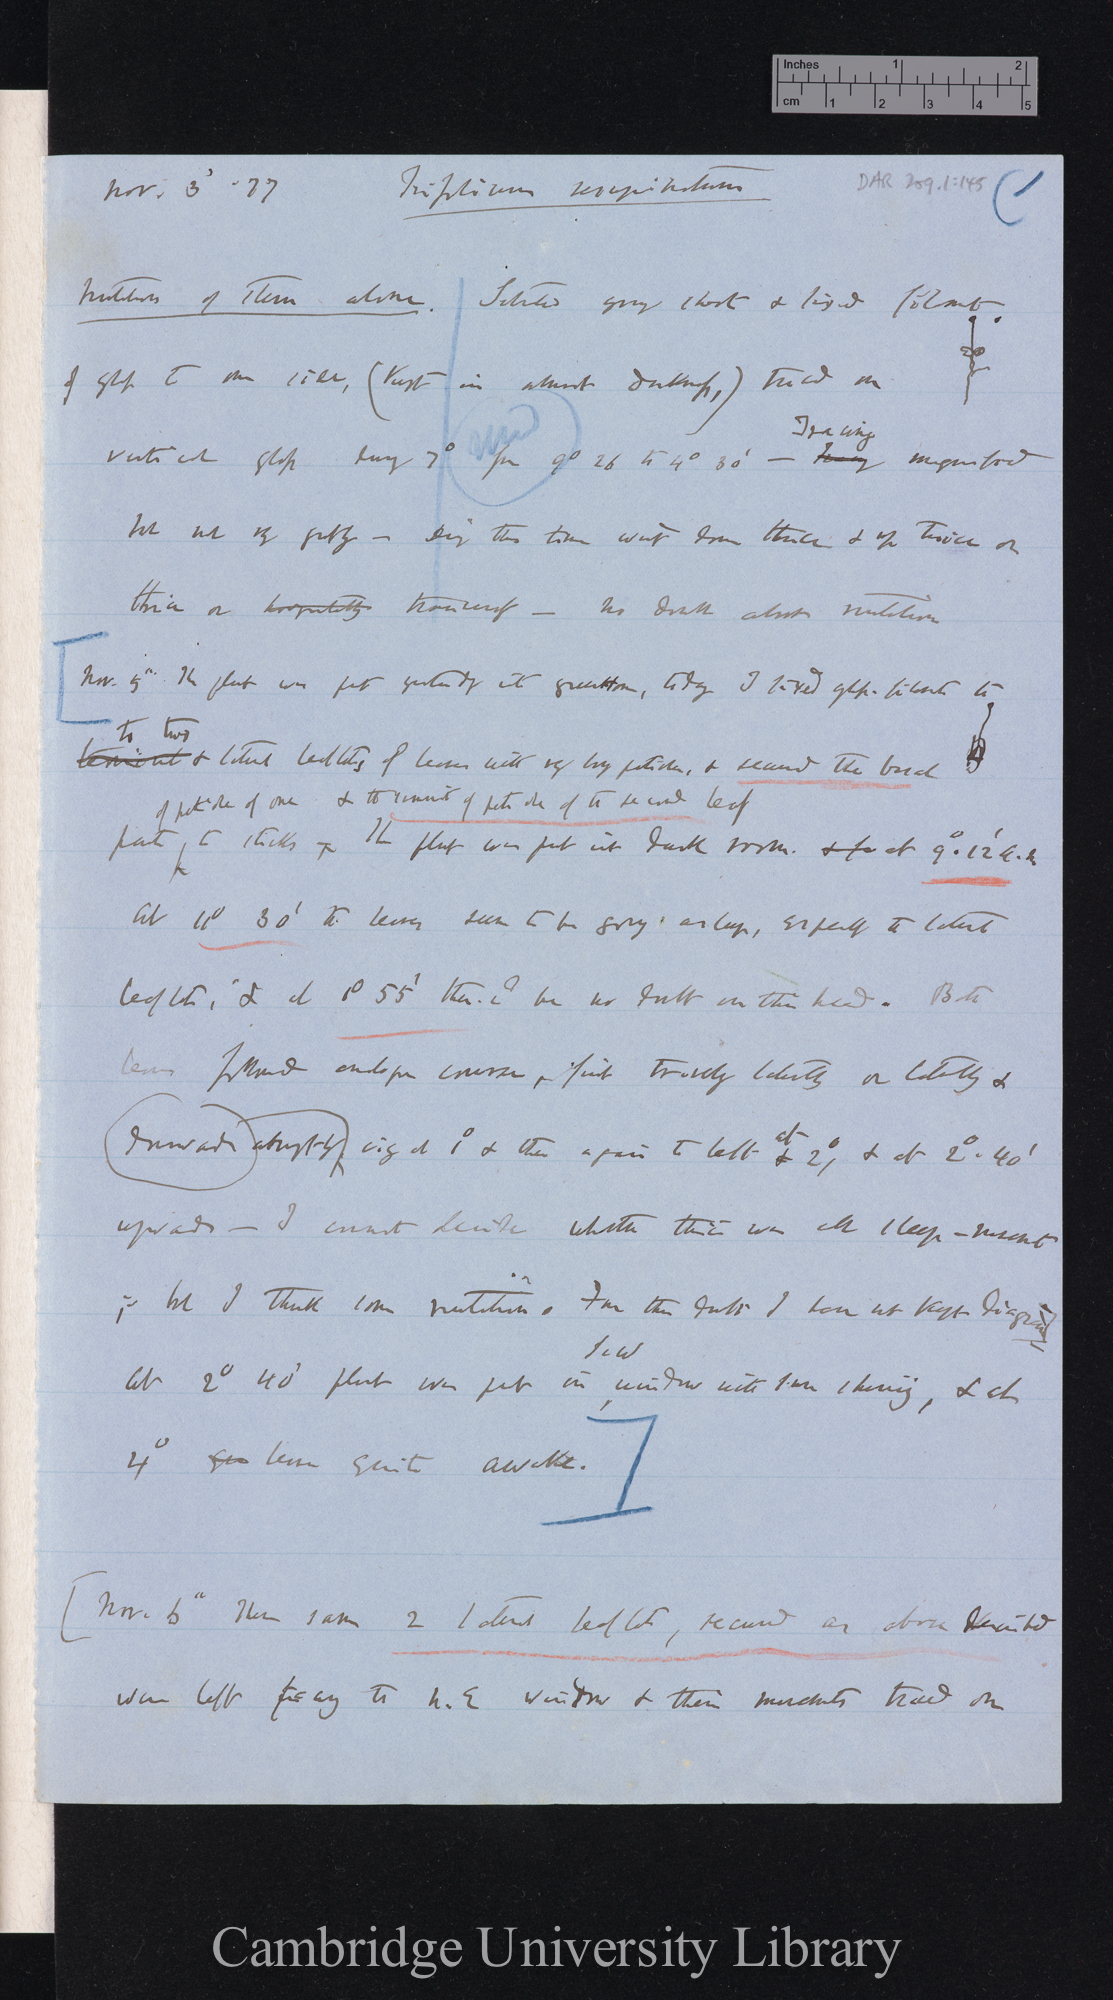 Inches 1 2
cm 1 2 3 4 5
Nov. 3d .77 Trifolium resupinatum DAR 209.1:145
Nutation of Stem alone. Selected young shoot & fixed filament
of glass to one side, (kept in almost darkness,) traced on
vertical glass during 7° from 9° 26 to 4° 30' — Tracing magnified
but not vy greatly — during this time went down thrice & up twice or
thrice or transversely — No doubt about nutation
[Nov. 5th The plant was put yesterday into greenhouse, today I fixed glass-filaments to
to two
terminal & lateral leaflets, of leaves with very long petioles, & secured the basal
of petiole of one & the summit of petiole of the second leaf
parts to sticks The plant was put into dark room. at 9°. 12' a.m
At 11° 30' the leaves seem to be going asleep, especially the lateral
leaflets, & at 1° 55' there cd be no doubt on this head. Both
leaves followed analogous course, first laterally or laterally &
downwards abruptly at 1° & then again to left at 2°, & at 2°. 40'
upwards — I cannot decide whether this was all sleep-movement
; but I think some nutation. From this doubt I have not kept Diagrams
At 2° 40' plant was put in S.W window with sun shining, & at
4° leaves quite awake.]
[Nov. 6th These same 2 lateral leaflets, secured as above described
were left facing to N.E window & their movements traced on
Cambridge University Library